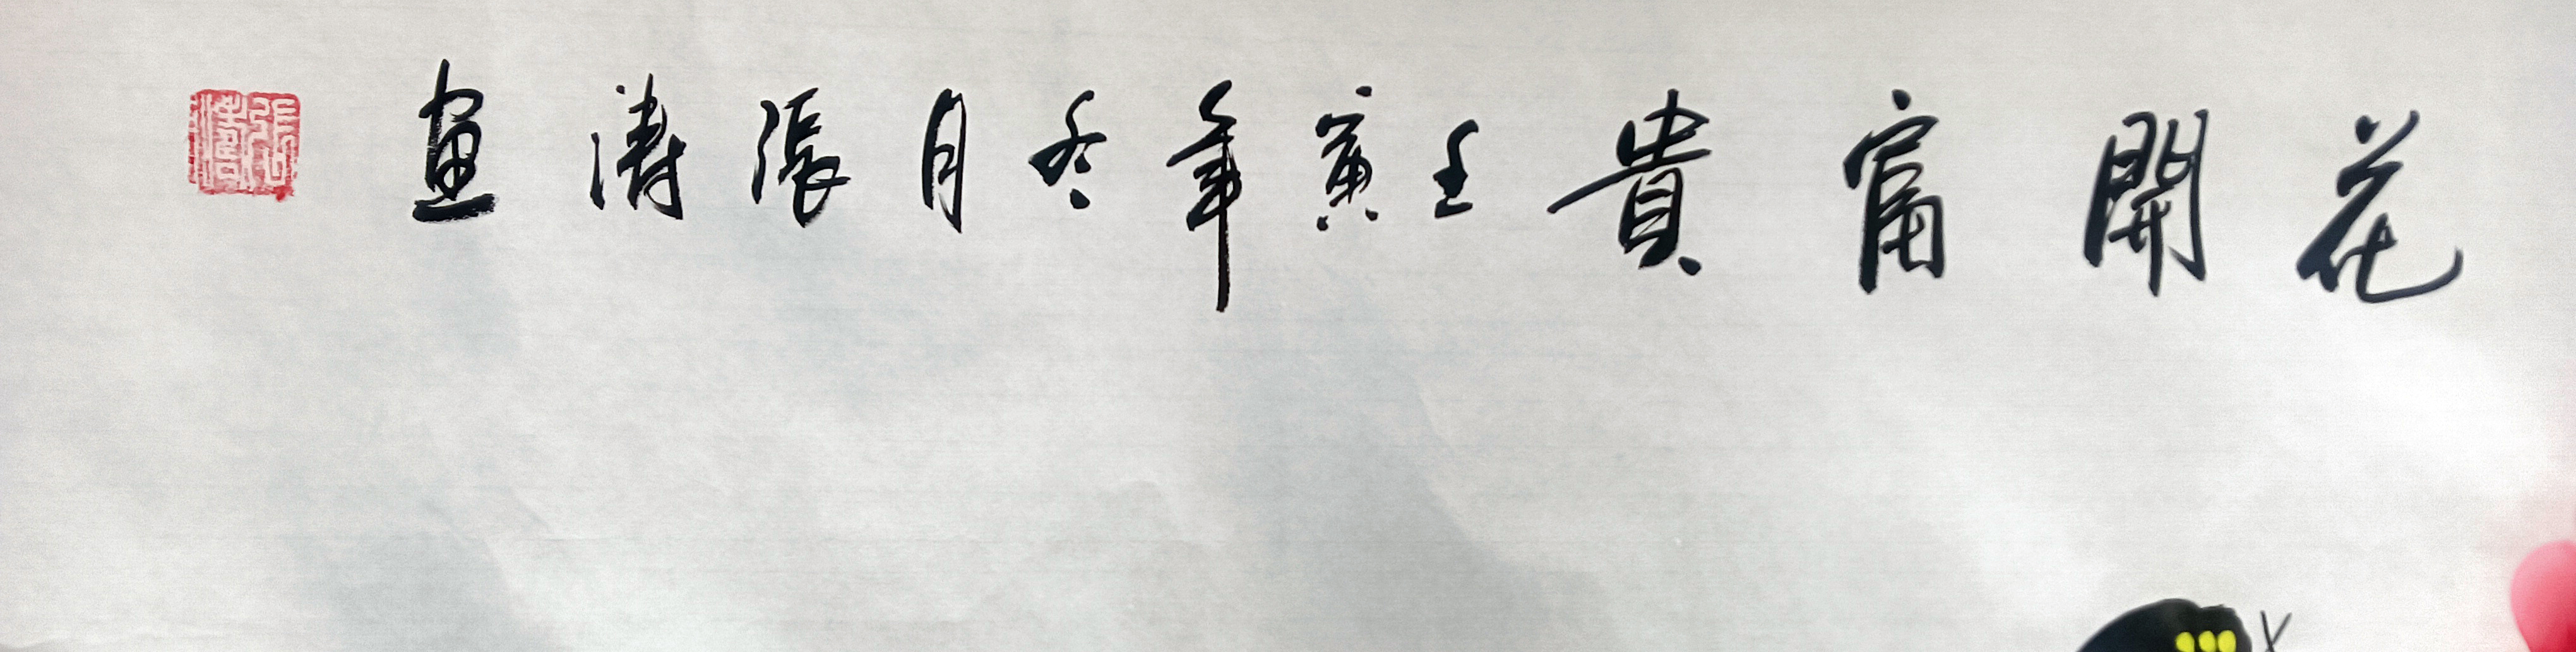 花開富貴壬寅年冬月張濤畫
張濤